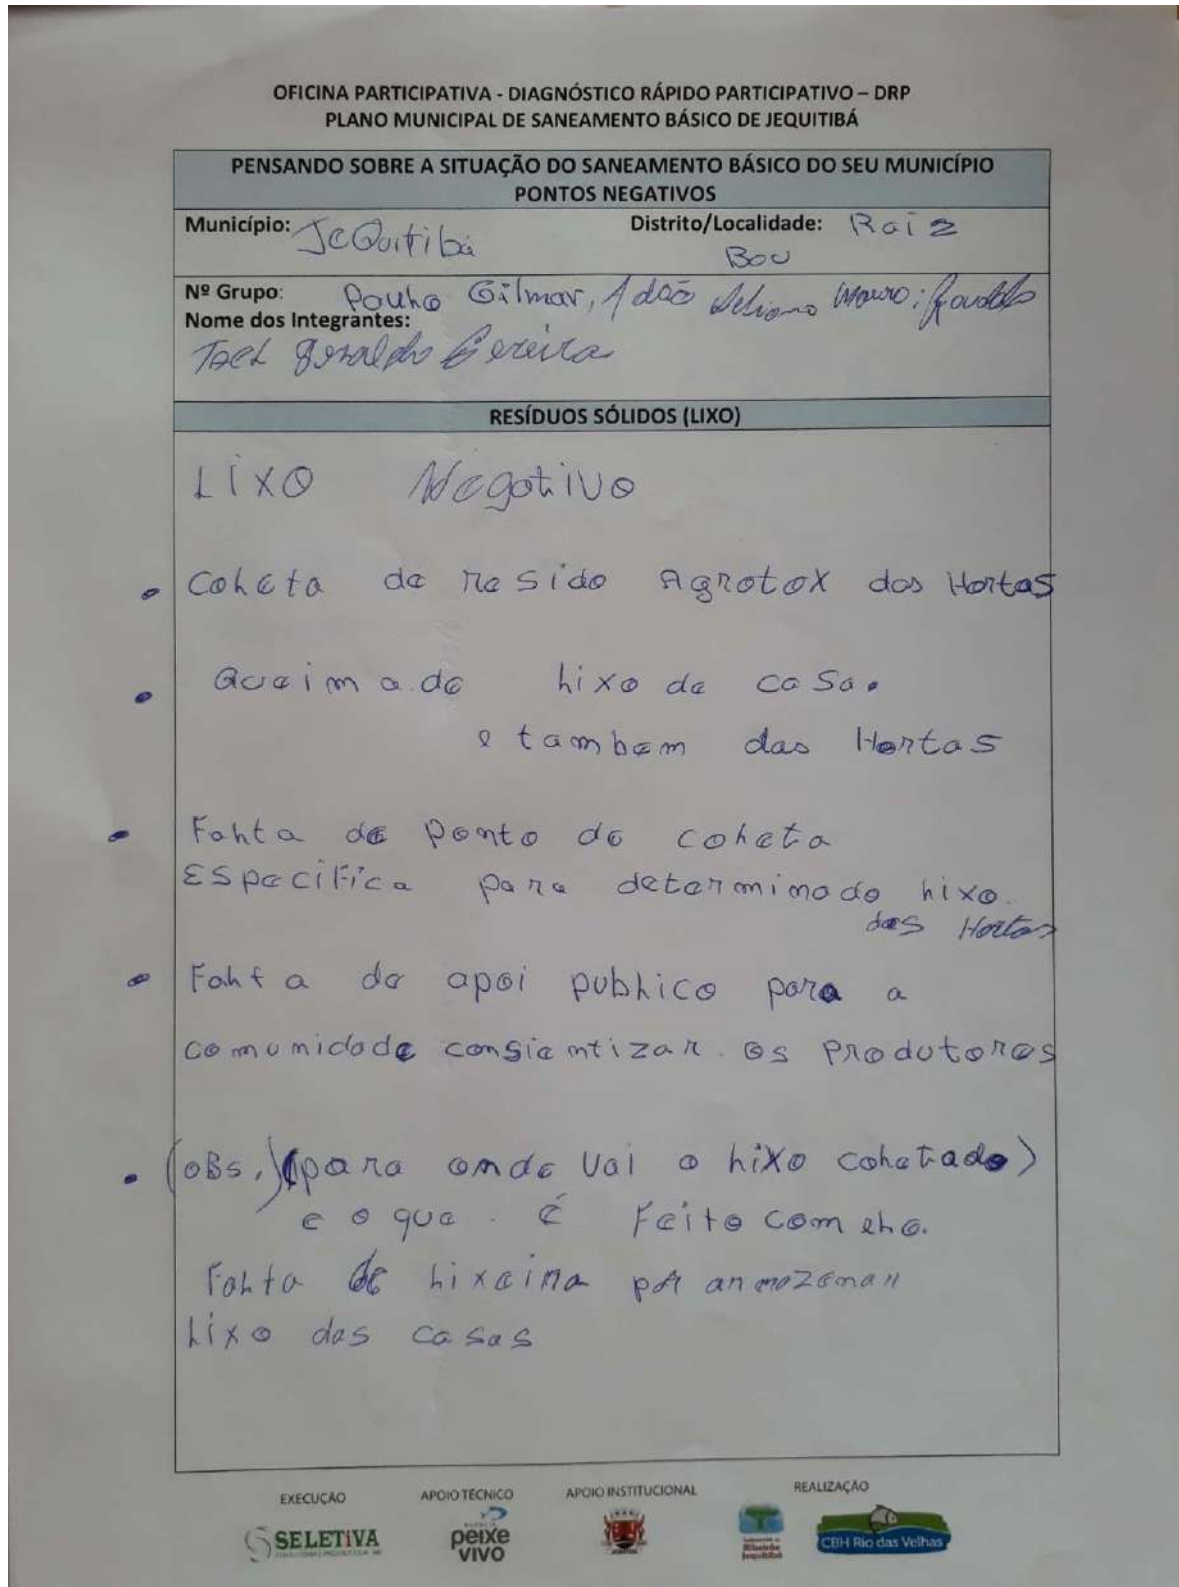 OFICINA PARTICIPATIVA - DIAGNÓSTICO RÁPIDO PARTICIPATIVO – DRP
PLANO MUNICIPAL DE SANEAMENTO BÁSICO DE JEQUITIBÁ
PENSANDO SOBRE A SITUAÇÃO DO SANEAMENTO BÁSICO DO SEU MUNICÍPIO
PONTOS NEGATIVOS
Município: JeQuitibá Distrito/Localidade: Raiz
Bou
Nº Grupo: Paulo Gilmar, Adão Mauro
Nome dos Integrantes:
Geraldo Pereira
RESÍDUOS SÓLIDOS (LIXO)
LIXO Negativo
• Coleta de resido Agrotox das Hortas
• Queimado lixo de casa.
e tambem das Hortas
• Falta de Ponto de coleta
Especifica para determinado lixo.
das Hortas
• Falta de apoi publico para a
comunidade consientizar. os Produtores
• (obs,) (para onde vai o lixo coletado)
e o que. É Feito com elo.
Falta de lixeira pA armazenar
Lixo das casas
EXECUÇÃO APOIO TÉCNICO APOIO INSTITUCIONAL REALIZAÇÃO
SELETIVA
peixe
vivo
Ribeirão
Jequitibá
CBH Rio das Velhas